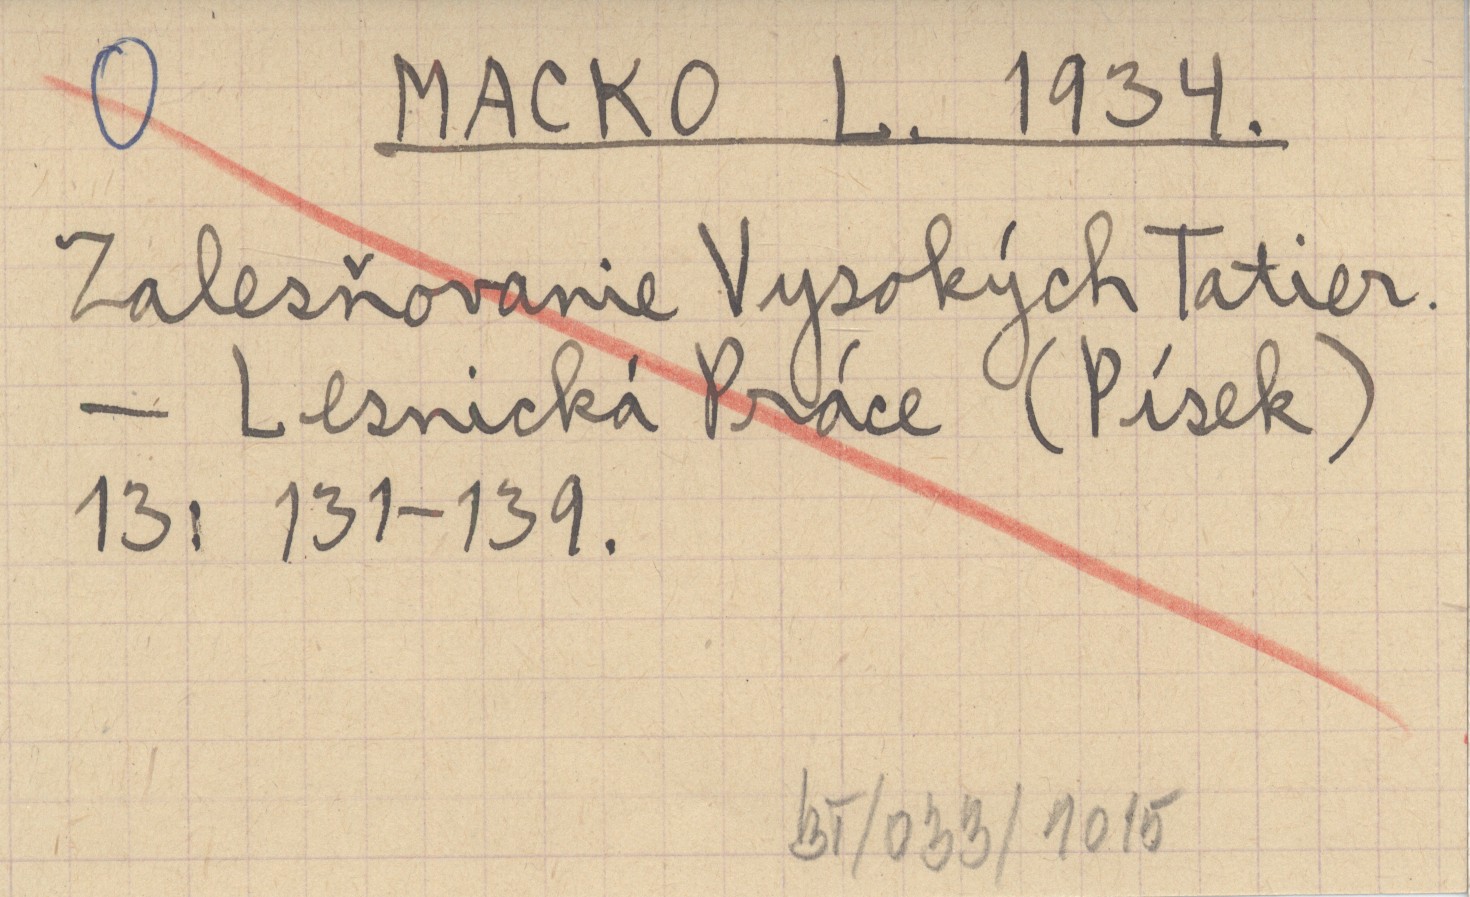 O MACKO L. 1934.
Zalesňovanie Vysokých Tatier.
— Lesnická Práce (Písek)
13: 131-139.
BT/033/1015